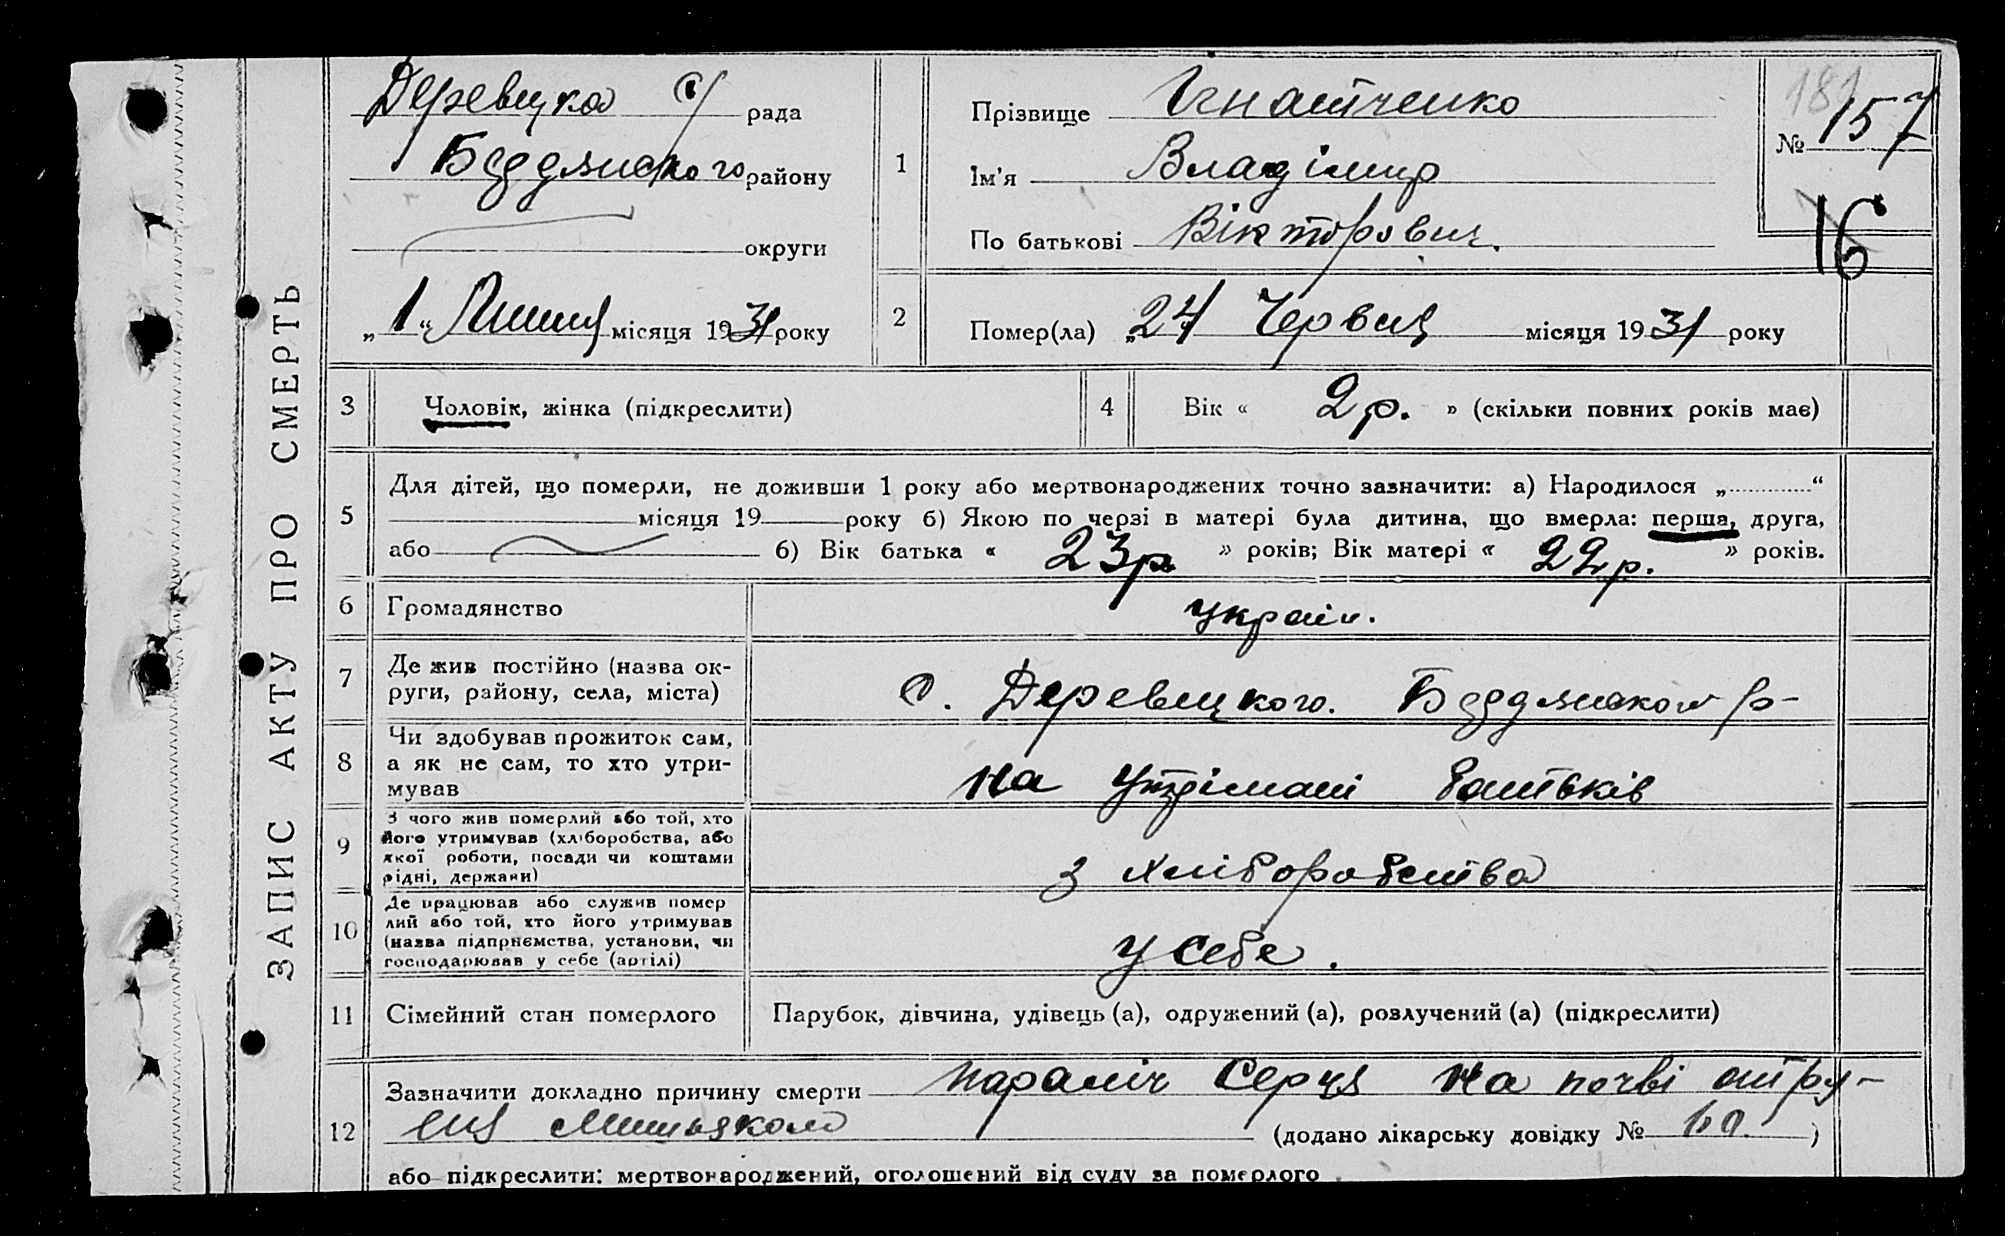 ЗАПИС АКТУ ПРО СМЕРТЬ
Деревецка с/ рада
району
округи
„ 1 “ Липня місяця 1931 року
1
Прізвище Ігнатченко
Ім'я Владімир
По батькові Вікторович.
181
№ 157
16
2
Помер(ла) „24 Червня місяця 1931 року
3 Чоловік, жінка (підкреслити)
4 Вік « 2 р. » (скільки повних років має)
5
Для дітей, що померли, не доживши 1 року або мертвонароджених точно зазначити: а) Народилося „............“
місяця 19 року б) Якою по черзі в матері була дитина, що вмерла: перша, друга,
або б) Вік батька « 23 р » років; Вік матері « 22 р. » років.
6 Громадянство україн.
7 Де жив постійно (назва ок-
руги, району, села, міста)
с. Деревецкого. р-
8 Чи здобував прожиток сам,
а як не сам, то хто утри-
мував
на утрімані батьків
9 З чого жив померлий або той, хто
його утримував (хліборобства, або
якої роботи, посади чи коштами
рідні, держави)
з хліборобства
10 Де працював або служив помер
лий або той, хто його утримував
(назва підприємства, установи, чи
господарював у себе (артілі)
у себе.
11 Сімейний стан померлого Парубок, дівчина, удівець (а), одружений (а), розлучений (а) (підкреслити)
12 Зазначити докладно причину смерти параліч серця на почві отру-
ення Мишьяком (додано лікарську довідку № )
або підкреслити: мертвонароджений, оголошений від суду за померлого